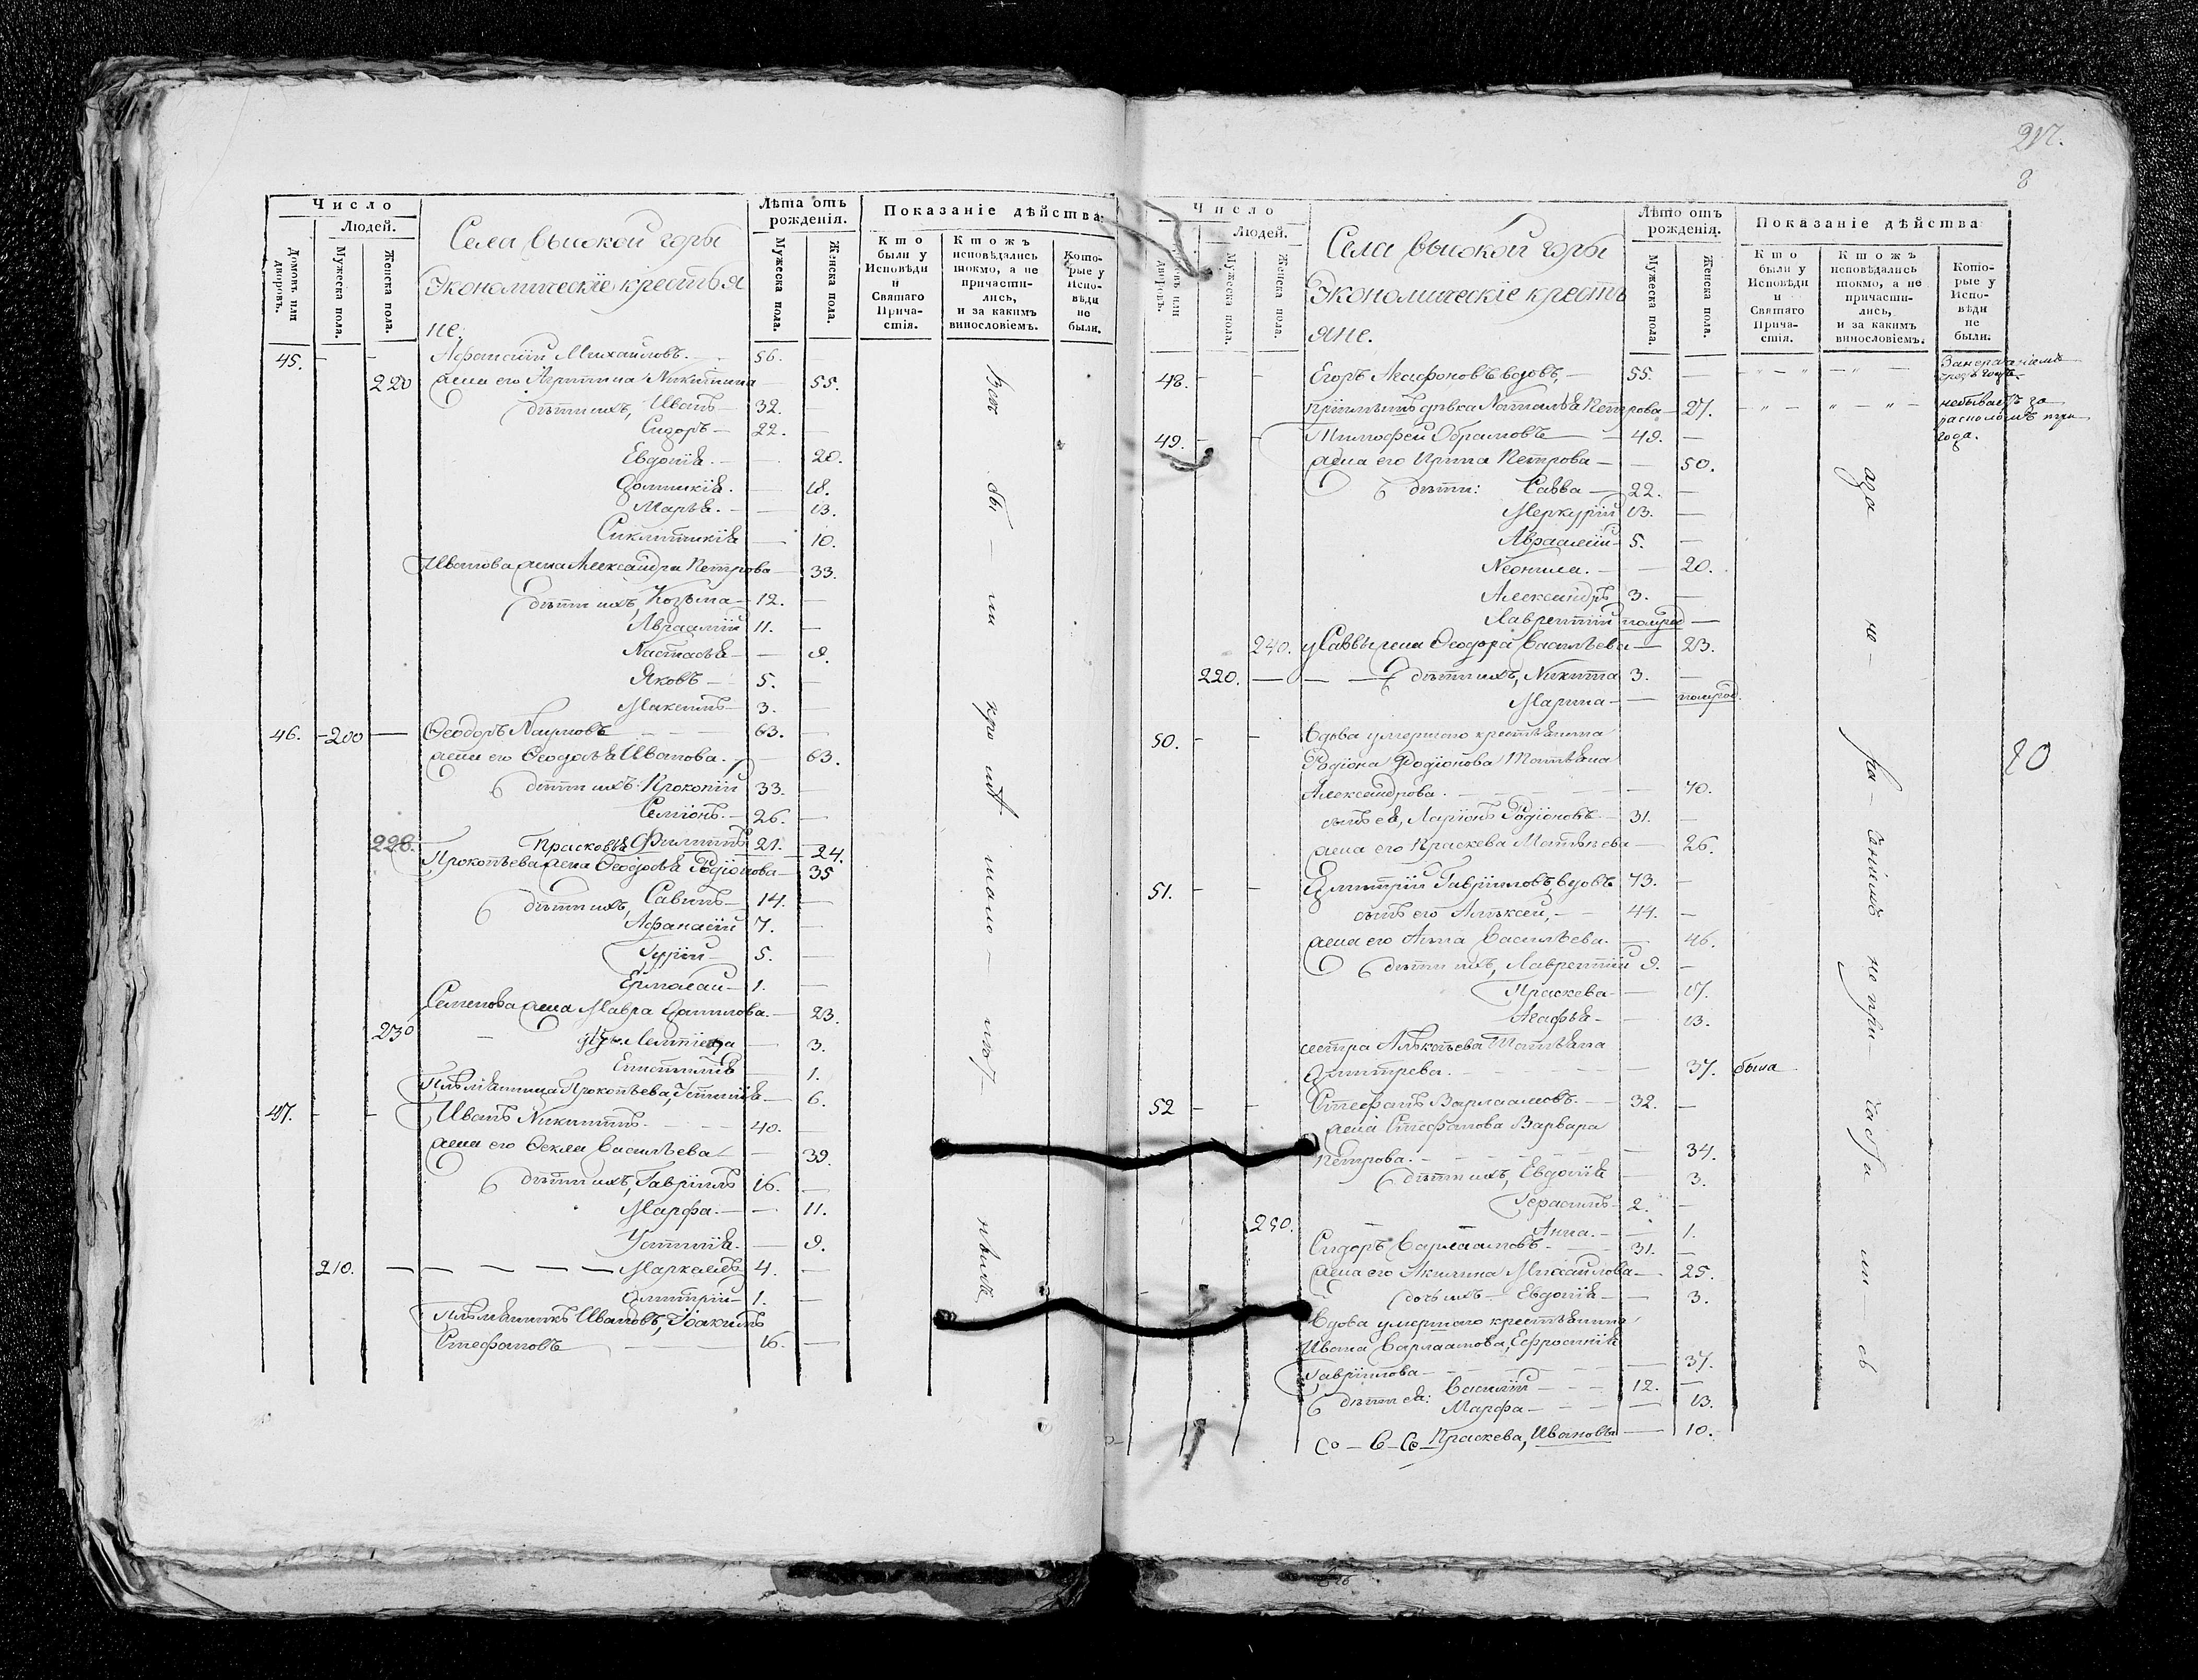 Число
Людей.
Домовъ или дворовъ.
Мужеска пола.
Женска пола.
Села высокой горы
Экономическіе крестья
не.
Лѣта отъ рожденія.
Мужеска пола.
Женска пола.
Показаніе дѣйства
Кто были у Исповѣди и Святаго Причастія.
Ктожъ исповѣдались токмо, а не причастились, и за какимъ винословіемъ.
Которые у Исповѣди не были.
45. - - Афанасій Михайловъ. 56. -
220 жена его Агрипина Никитина 55.
дѣти ихъ, Иванъ 32.
Сидоръ 22. -
Евдокія 20.
Домникія. 18.
Марья. 13.
Сиклитикія 10.
Иванова жена Александра Петрова 33.
дѣти ихъ, Козьма 12. -
Авраамій 11. -
Настасья 9.
Яковъ 5. -
Максимъ 3. -
46. - 200 - Ѳеодоръ Наумовъ 63. -
жена его Ѳеодосья Иванова. 63.
дѣти ихъ Прокопій 33. -
Семіонъ. 26. -
228. Прасковья Филиппъ 21. - 24.
Прокопьева жена Ѳеодосья Родіонова 35
дѣти ихъ, Савинъ 14. -
Афанасій 7. -
Гурій 5. -
Ермолай 1. -
Семенова жена Мавра Данилова. 23.
230 - 3.
1.
Племянница Прокопьева, Устинія 6.
47. - - Иванъ Никитинъ. 40. -
жена его Ѳекла Васильева 39.
дѣти ихъ, Гавріилъ 16. -
Марфа. 11.
Устинія. 9.
210. - Маркелъ 4. -
Дмитрій 1. -
Племянникъ Ивановъ, Іоакимъ
Стефановъ 16. -
217.
8
Число
Людей.
Домовъ или дворовъ.
Мужеска пола.
Женска пола.
Села высокой горы
Экономическіе кресть
яне.
Лѣто отъ рожденія.
Мужеска пола.
Женска пола.
Показаніе дѣйства
Кто были у Исповѣди и Святаго Причастія.
Ктожъ исповѣдались токмо, а не причастились, и за какимъ винословіемъ.
Которые у Исповѣди не были.
48. - - Егоръ Агафоновъ вдовъ, 55. -
дѣвка Наталья Петрова 27. небываетъ за расколомъ три года.
49. - - Тимофей Абрамовъ 49. -
жена его Ирина Петрова 50.
дѣти: Савва 22. -
Меркурій 13. -
Авраамій 5. -
Неонила. 20.
Александръ 3. -
Лаврентій полугод -
240. у Саввы жена Ѳеодора Васильева 23.
220. дѣти ихъ, Никита 3. -
Марина полугод.
50. - - вдова умершаго крестьянина
Родіона Родіонова Татьяна
Александрова. 70.
сынъ ея, Ларіонъ Родіоновъ 31. -
жена его Праскева Матвѣева 26.
51. - - Дмитрій Гавріиловъ вдовъ 73. -
сынъ его Алѣксей, 44. -
жена его Анна Васильева. 46.
дѣти ихъ, Лаврентій 9. -
Праскева 17.
Агафья 13.
сестра Алѣксѣева Татьяна
Дмитрева. 37. была
52 - - Стефанъ Варлаамовъ 32. -
жена Стефанова Варвара
Петрова. 34.
дѣти ихъ, Евдокія 3.
Герасимъ 2. -
250. Анна. 1.
Сидоръ Варлаамовъ 31. -
жена его Акилина Михайлова 25.
дочь ихъ Евдокія 3.
вдова умершаго крестьянина
Ивана Варлаамова, Ефросинія
Гавріилова 37.
дѣти ея: Василій 12. -
Марфа 13.
Праскева, Ивановы 10.